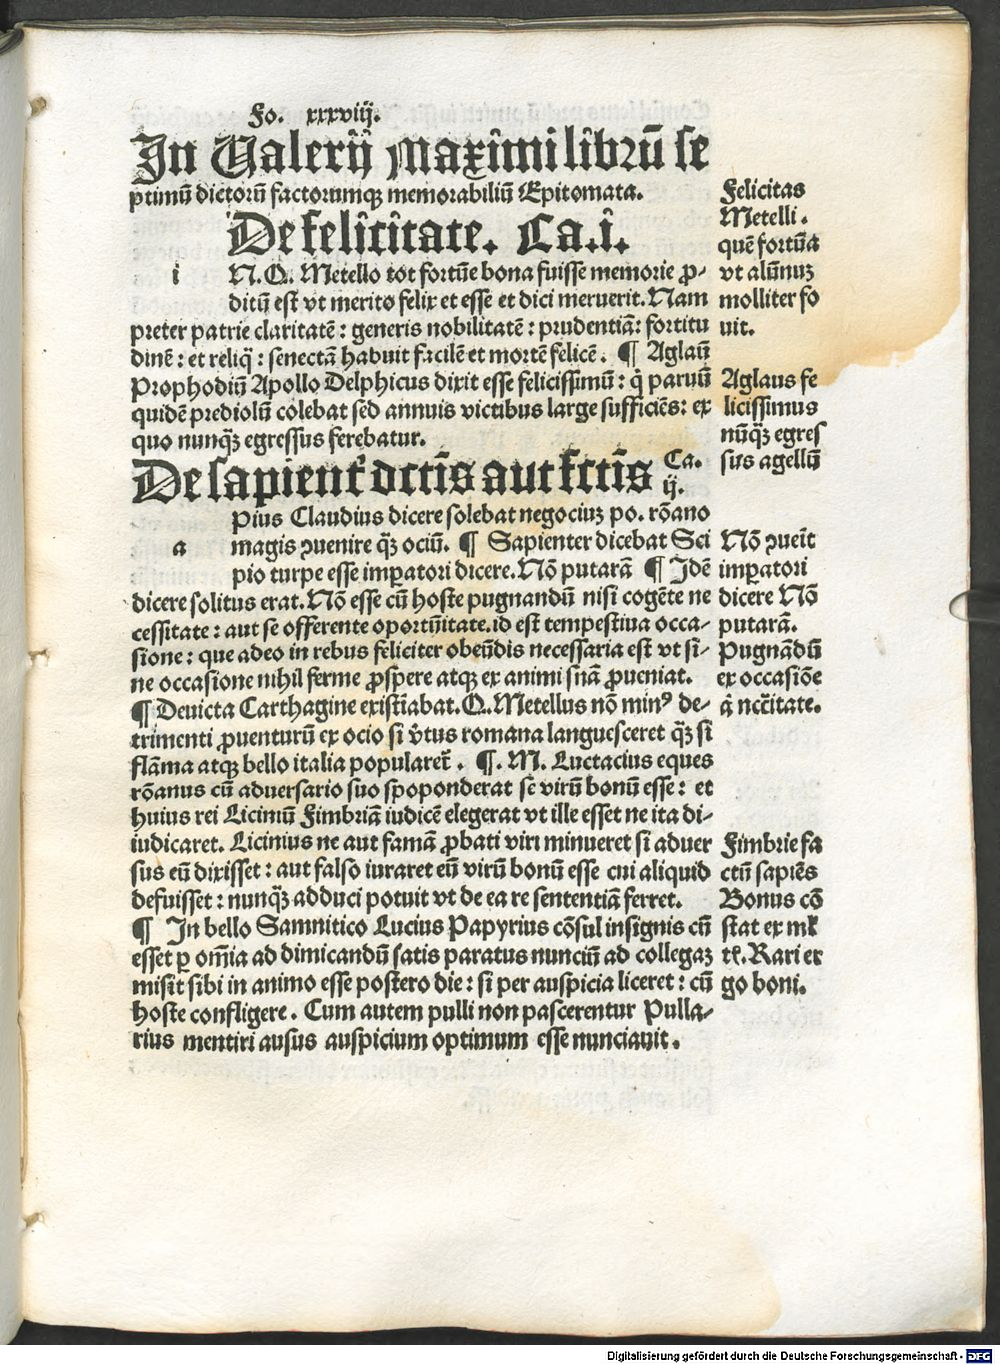 Fo. xxxviij.
In Valerij Maximi librū se
ptimū dictorū factorumqꝫ memorabiliū Epitomata.
De felicitate. Ca.i.
i N.Q. Metello tot fortūe bona fuisse memorie ꝓ-
ditū est vt merito felix et esse et dici meruerit. Nam
preter patrie claritatē: generis nobilitatē: prudentiā: fortitu
dinē: et reliq̄: senectā habuit facilē et mortē felicē. ¶ Aglaū
Prophodiū Apollo Delphicus dixit esse felicissimū: q̇ paruū
quidē prediolū colebat sed annuis victibus large sufficiēs: ex
quo nunq̄ꝫ egressus ferebatur.
Felicitas
Metelli.
quē fortūa
vt alūnuꝫ
molliter fo
uit.
Aglaus fe
licissimus
nūq̄ꝫ egres
sus agellū
De sapient̕ dctīs aut fctīs Ca.
ij.
Pius Claudius dicere solebat negociuꝫ po. rōano
a magis ꝯuenire q̄ꝫ ociū. ¶ Sapienter dicebat Sci
pio turpe esse imꝑatori dicere. Nō putarā ¶ Idē
dicere solitus erat. Nō esse cū hoste pugnandū nisi cogēte ne
cessitate: aut se offerente oportūitate. id est tempestiua occa-
sione: que adeo in rebus feliciter obeūdis necessaria est vt si-
ne occasione nihil ferme ꝓspere atqꝫ ex animi snīa ꝓueniat.
¶ Deuicta Carthagine existīabat. Q. Metellus nō minꝰ de-
trimenti ꝓuenturū ex ocio si v̄tus romana languesceret q̄ꝫ si
flāma atqꝫ bello italia popularet̄. ¶. M. Luctacius eques
rōanus cū aduersario suo spoponderat se virū bonū esse: et
huius rei Liciniū Fimbriā iudicē elegerat vt ille esset ne ita di-
iudicaret. Licinius ne aut famā ꝓbati viri minueret si aduer
sus eū dixisset: aut falso iuraret eū virū bonū esse cui aliquid
defuisset: nunq̄ꝫ adduci potuit vt de ea re sententiā ferret.
¶ In bello Samnitico Lucius Papyrius cōsul insignis cū
esset ꝑ om̄ia ad dimicandū satis paratus nunciū ad collegaꝫ
misit sibi in animo esse postero die: si per auspicia liceret: cū
hoste confligere. Cum autem pulli non pascerentur Pulla-
rius mentiri ausus auspicium optimum esse nunciauit.
Nō ꝯueīt
imꝑatori
dicere Nō
putarā.
Pugnādū
ex occasiōe
q̄ nccītate.
Fimbrie fa
ctū sapiēs
Bonus cō
stat ex mł
tꝭ. Rari er
go boni.
Digitalisierung gefördert durch die Deutsche Forschungsgemeinschaft - DFG